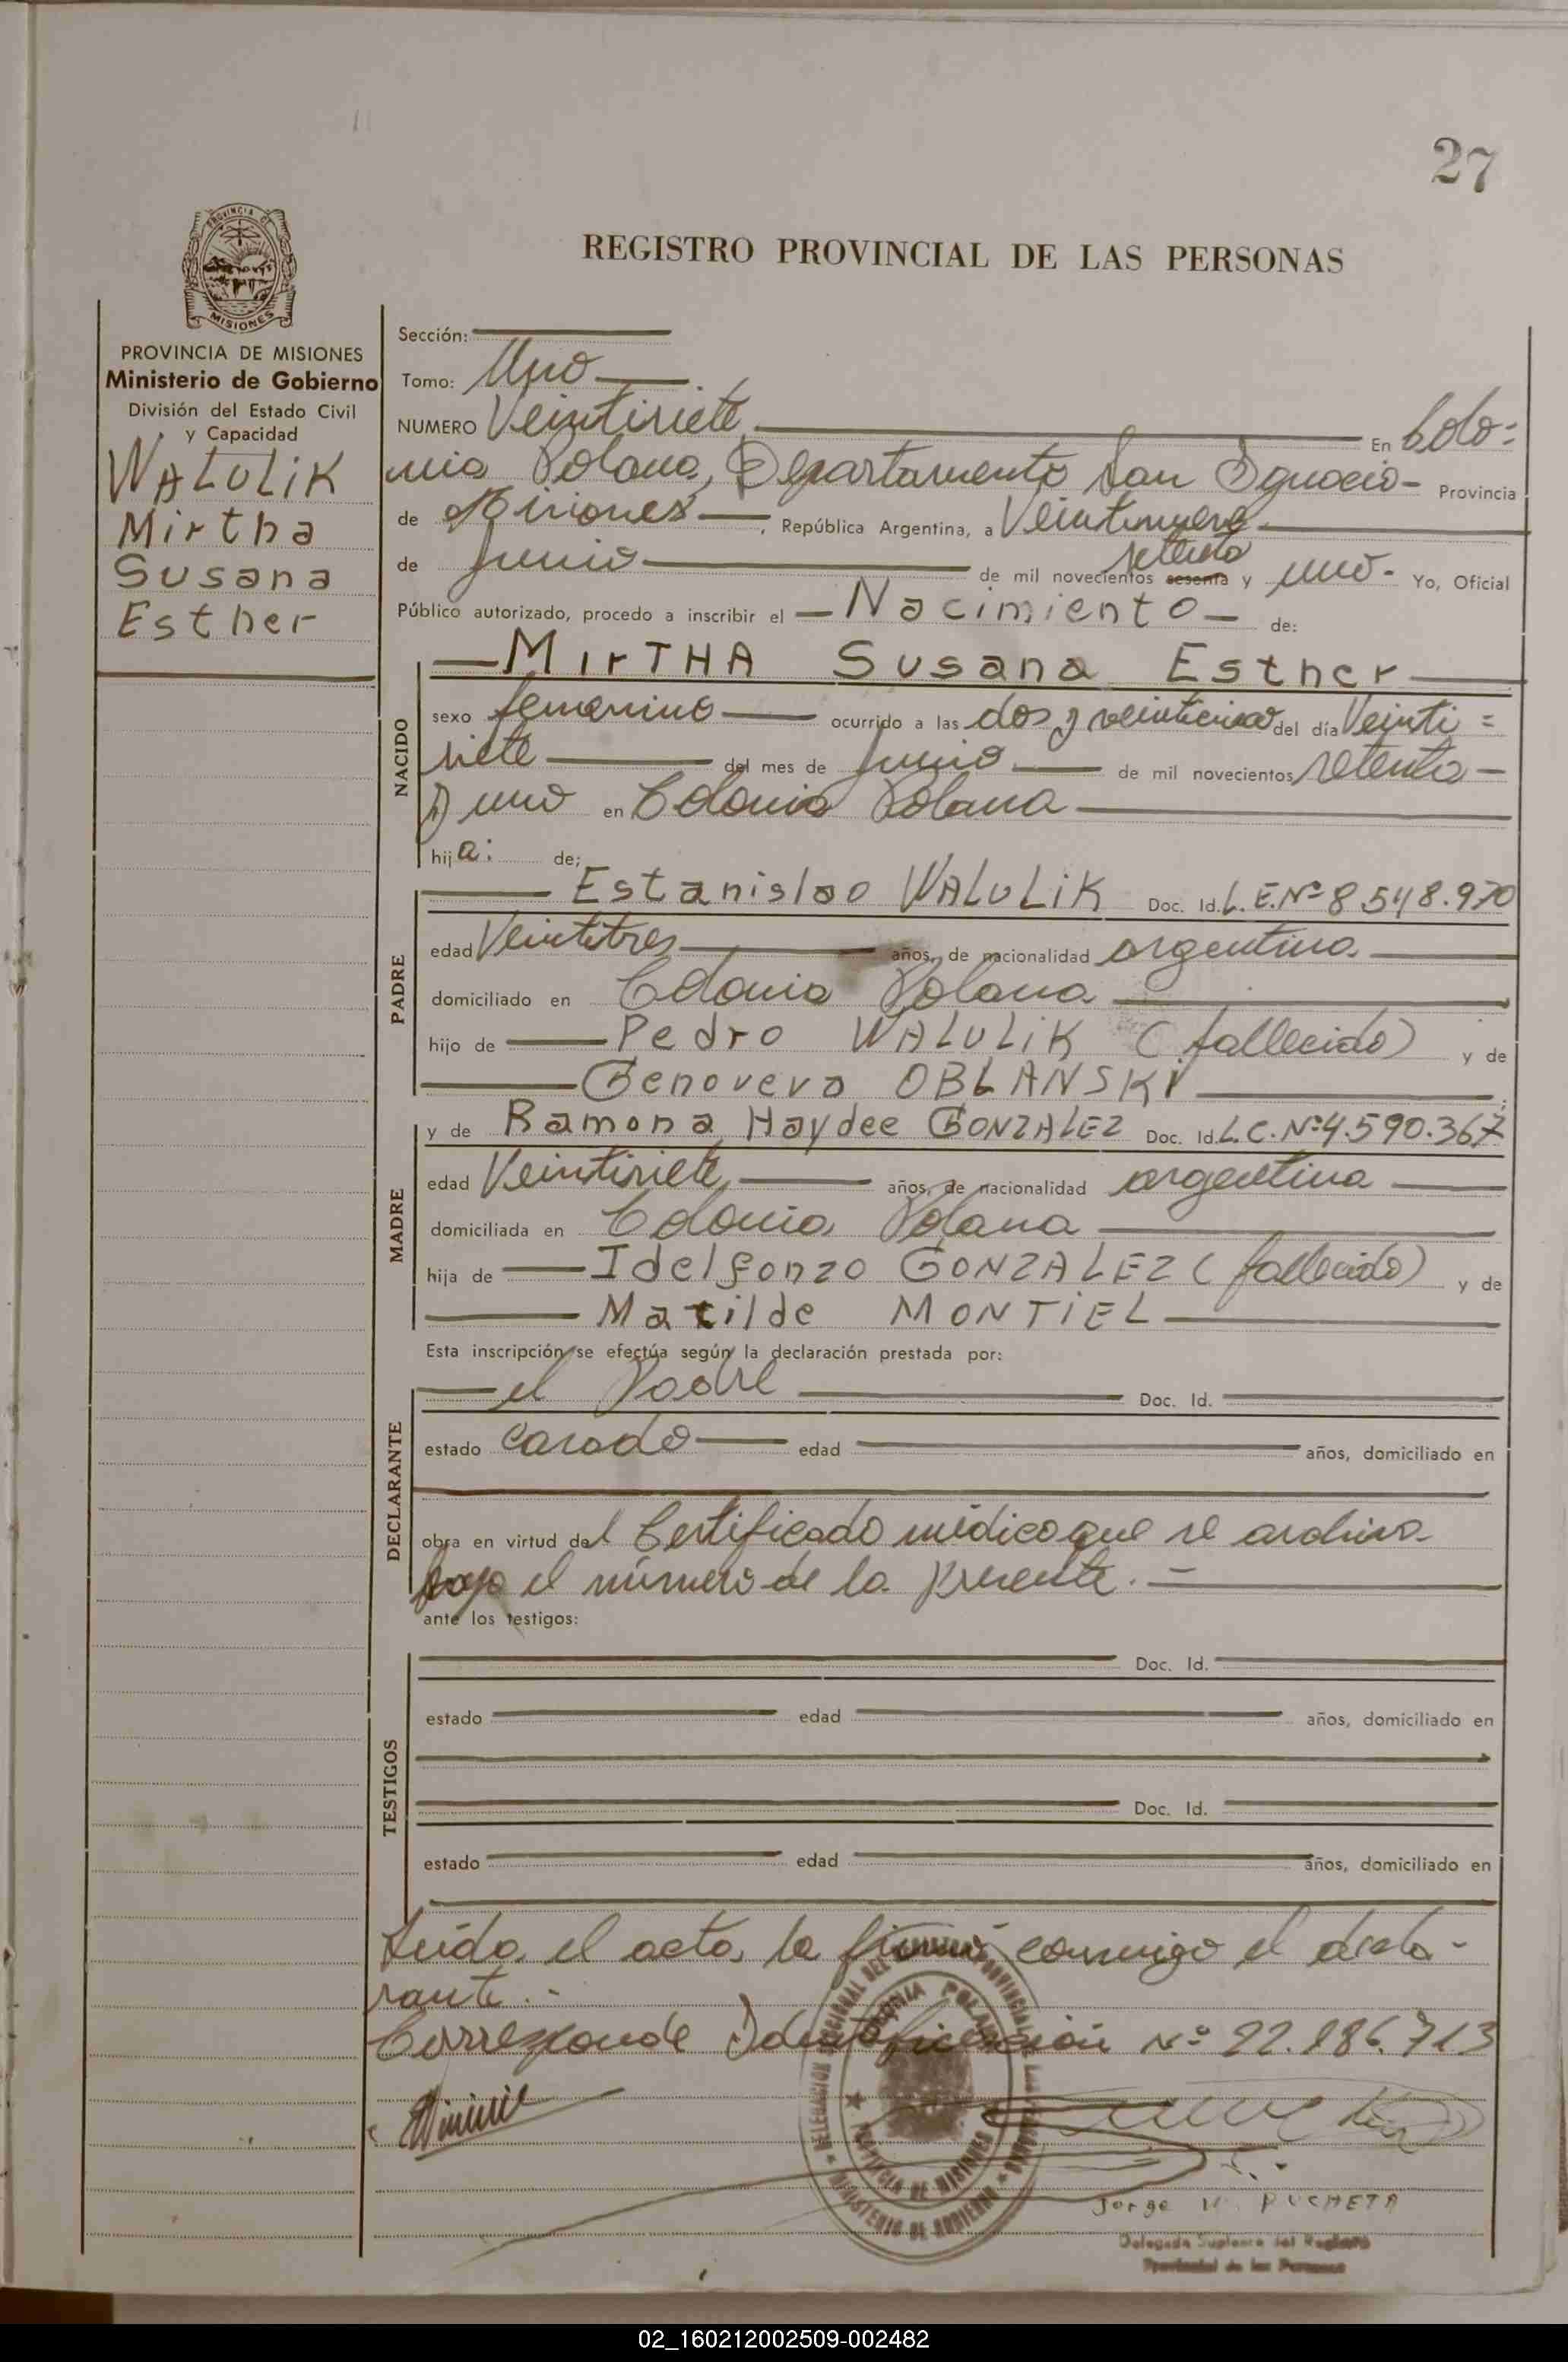 27
REGISTRO PROVINCIAL DE LAS PERSONAS
PROVINCIA DE
MISIONES
PROVINCIA DE MISIONES
Ministerio de Gobierno
División del Estado Civil
y Capacidad
WALULIK
Mirtha
Susana
Esther
Sección:
Tomo: Uno
NUMERO Veintisiete En Colo=
nia Polana, Departamento San Ignacio - Provincia
de Misiones, República Argentina, a Veintinueve
de Junio de mil novecientos sesenta setenta y uno - Yo, Oficial
Público autorizado, procedo a inscribir el - Nacimiento - de:
NACIDO
MIrTHA Susana Esther
sexo femenino ocurrido a las dos y veinticinco del día Veinti=
siete del mes de Junio de mil novecientos setenta -
y uno en Colonia Polana
hija: de;
PADRE
Estanislao WALULIK Doc. Id. L.E.Nº 8.548.970
edad Veintitres años, de nacionalidad argentina
domiciliado en Colonia Polana
hijo de Pedro WALULIK (fallecido) y de
Genoveva OBLANSKI
MADRE
y de Ramona Haydee GONZALEZ Doc. Id. L.C. Nº 4.590.367
edad Veintisiete años, de nacionalidad argentina
domiciliada en Colonia Polana
hija de Idelfonzo GONZALEZ (fallecido) y de
Matilde MONTIEL
Esta inscripción se efectúa según la declaración prestada por:
DECLARANTE
el Padre Doc. Id.
estado casado edad años, domiciliado en
obra en virtud del Certificado médico que se archiva
bajo el número de la presente. =
ante los testigos:
TESTIGOS
Doc. Id.
estado edad años, domiciliado en
Doc. Id.
estado edad años, domiciliado en
Leída el acta, la firmó conmigo el decla-
rante.-
Corresponde Identificación Nº 22.186.713
COLONIA POLANA
PROVINCIA DE MISIONES
MINISTERIO DE GOBIERNO
Jorge PUCHETA
Delegado Suplente del Registro
Provincial de las Personas
02_160212002509-002482